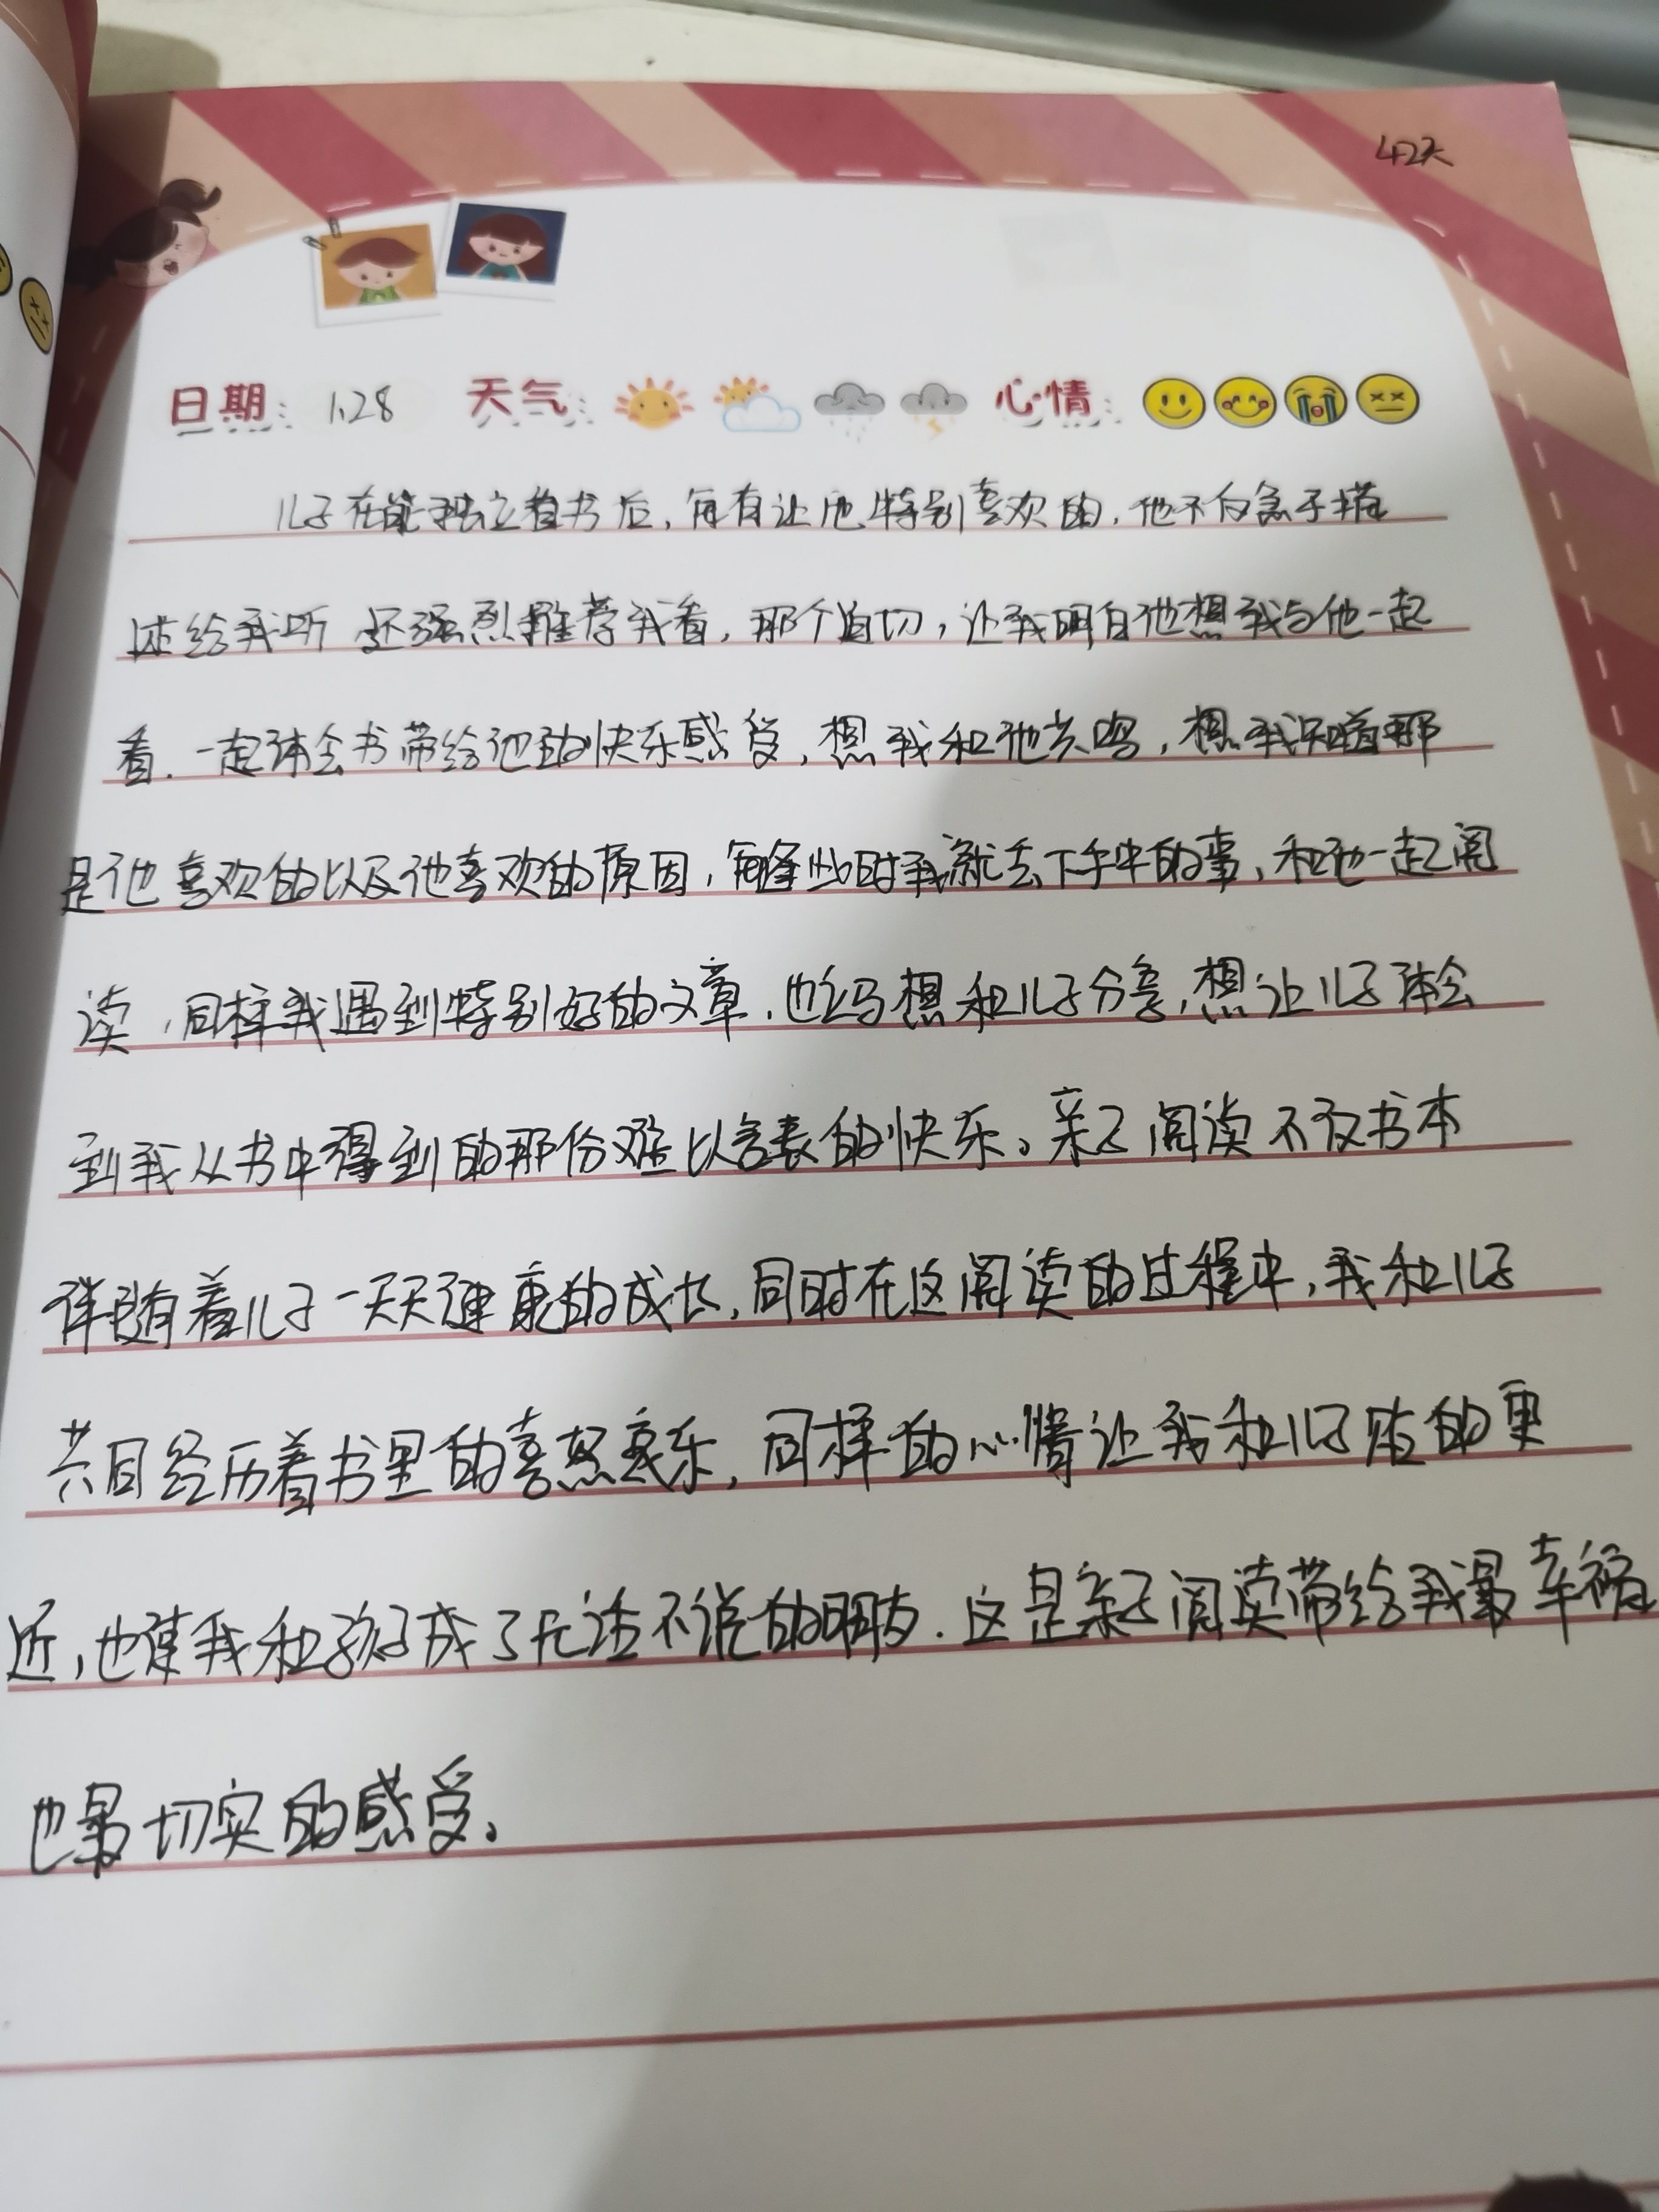 42天
日期: 1.28 天气: 心情:
儿子在能独立看书后,每有让他特别喜欢的,他不仅急于描
述给我听 还强烈推荐我看,那个迫切,让我明白他想我与他一起
看.一起体会书带给他的快乐感受,想我和他共鸣,想我知道那
是他喜欢的以及他喜欢的原因,每逢此时我就丢下手中的事,和他一起阅
读,同样我遇到特别好的文章,也会想和儿子分享,想让儿子体会
到我从书中得到的那份难以言表的快乐。亲子阅读不仅书本
伴随着儿子一天天健康的成长,同时在这阅读的过程中,我和儿子
共同经历着书里的喜怒哀乐,同样的心情让我和儿子贴的更
近,也使我和孩子成了无话不说的朋友.这是亲子阅读带给我最幸福
也最切实的感受。